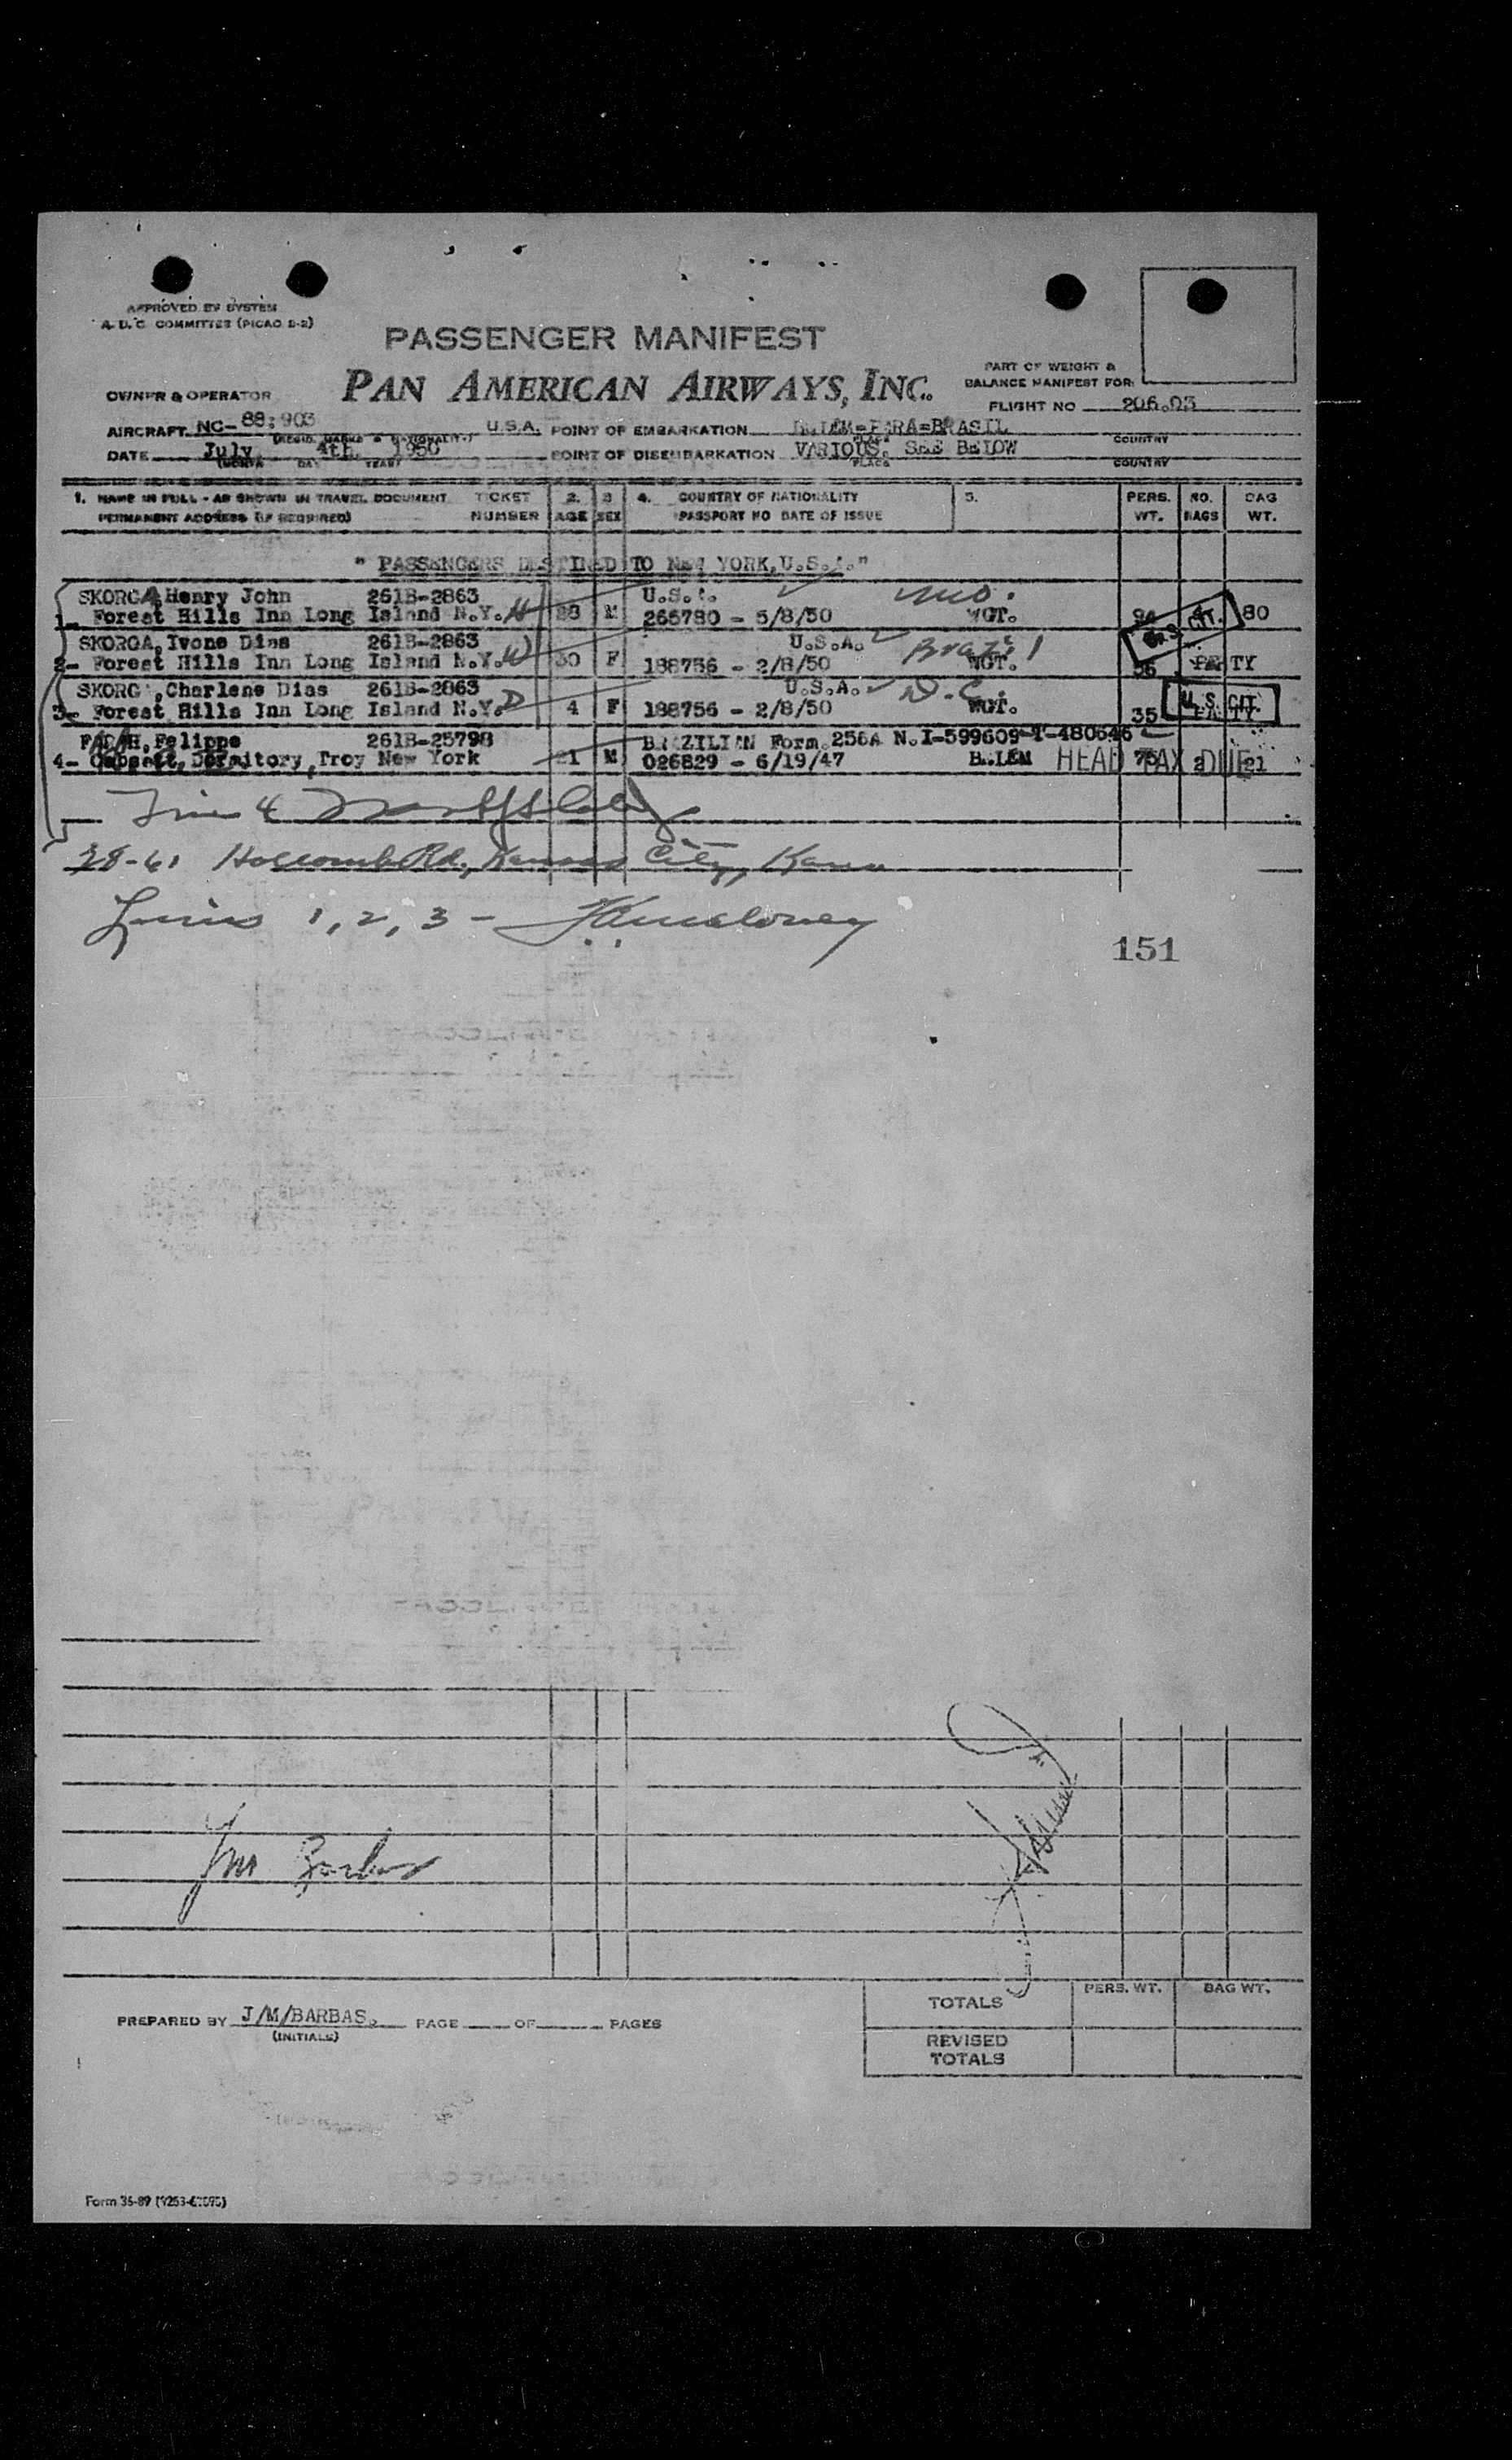 APPROVED BY SYSTEM
A. D. C. COMMITTEE (PICAO 2-2)
PASSENGER MANIFEST
PAN AMERICAN AIRWAYS, INC.
PART OF WEIGHT &
BALANCE MANIFEST FOR:
OWNER & OPERATOR
FLIGHT NO 206.03
AIRCRAFT NC- 88:903 U.S.A. POINT OF EMBARKATION BELEM-PARA-BRASIL
PLACE COUNTRY
DATE July 4th 1950 POINT OF DISEMBARKATION VARIOUS. SEE BELOW
MONTH DAY YEAR PLACE COUNTRY
1. NAME IN FULL - AS SHOWN IN TRAVEL DOCUMENT TICKET 2. 3 4. COUNTRY OF NATIONALITY 5. PERS. NO. BAG
PERMANENT ADDRESS (IF REQUIRED) NUMBER AGE SEX PASSPORT NO DATE OF ISSUE WT. BAGS WT.
" PASSENGERS DESTINED TO NEW YORK, U.S.A."
SKORGA, Henry John 261B-2863 U.S.A. Mo.
1- Forest Hills Inn Long Island N.Y. H 28 M 265780 - 5/8/50 WGT. 94 80
SKORGA, Ivone Dias 261B-2863 U.S.A. Brazil
2- Forest Hills Inn Long Island N.Y. W 30 F 188756 - 2/8/50 WGT. 56 PARTY
SKORG ,Charlene Dias 261B-2863 U.S.A. D.C. U.S. CIT.
3- Forest Hills Inn Long Island N.Y. D 4 F 188756 - 2/8/50 WGT. 35 PARTY
Felippe 261B-25798 BRAZILIAN Form 256A N.I-599609-T-480646
4- Dormitory, Troy New York 21 M 026829 - 6/19/47 BELEM HEAD TAX DUE 75 2 21
Line 4
28-61 Holcomb Rd., Kansas City, Kans
Lines 1, 2, 3 - Maloney
151
Jm Barbas
PREPARED BY J/M/BARBAS. PAGE OF PAGES
(INITIALS)
TOTALS PERS. WT. BAG WT.
REVISED
TOTALS